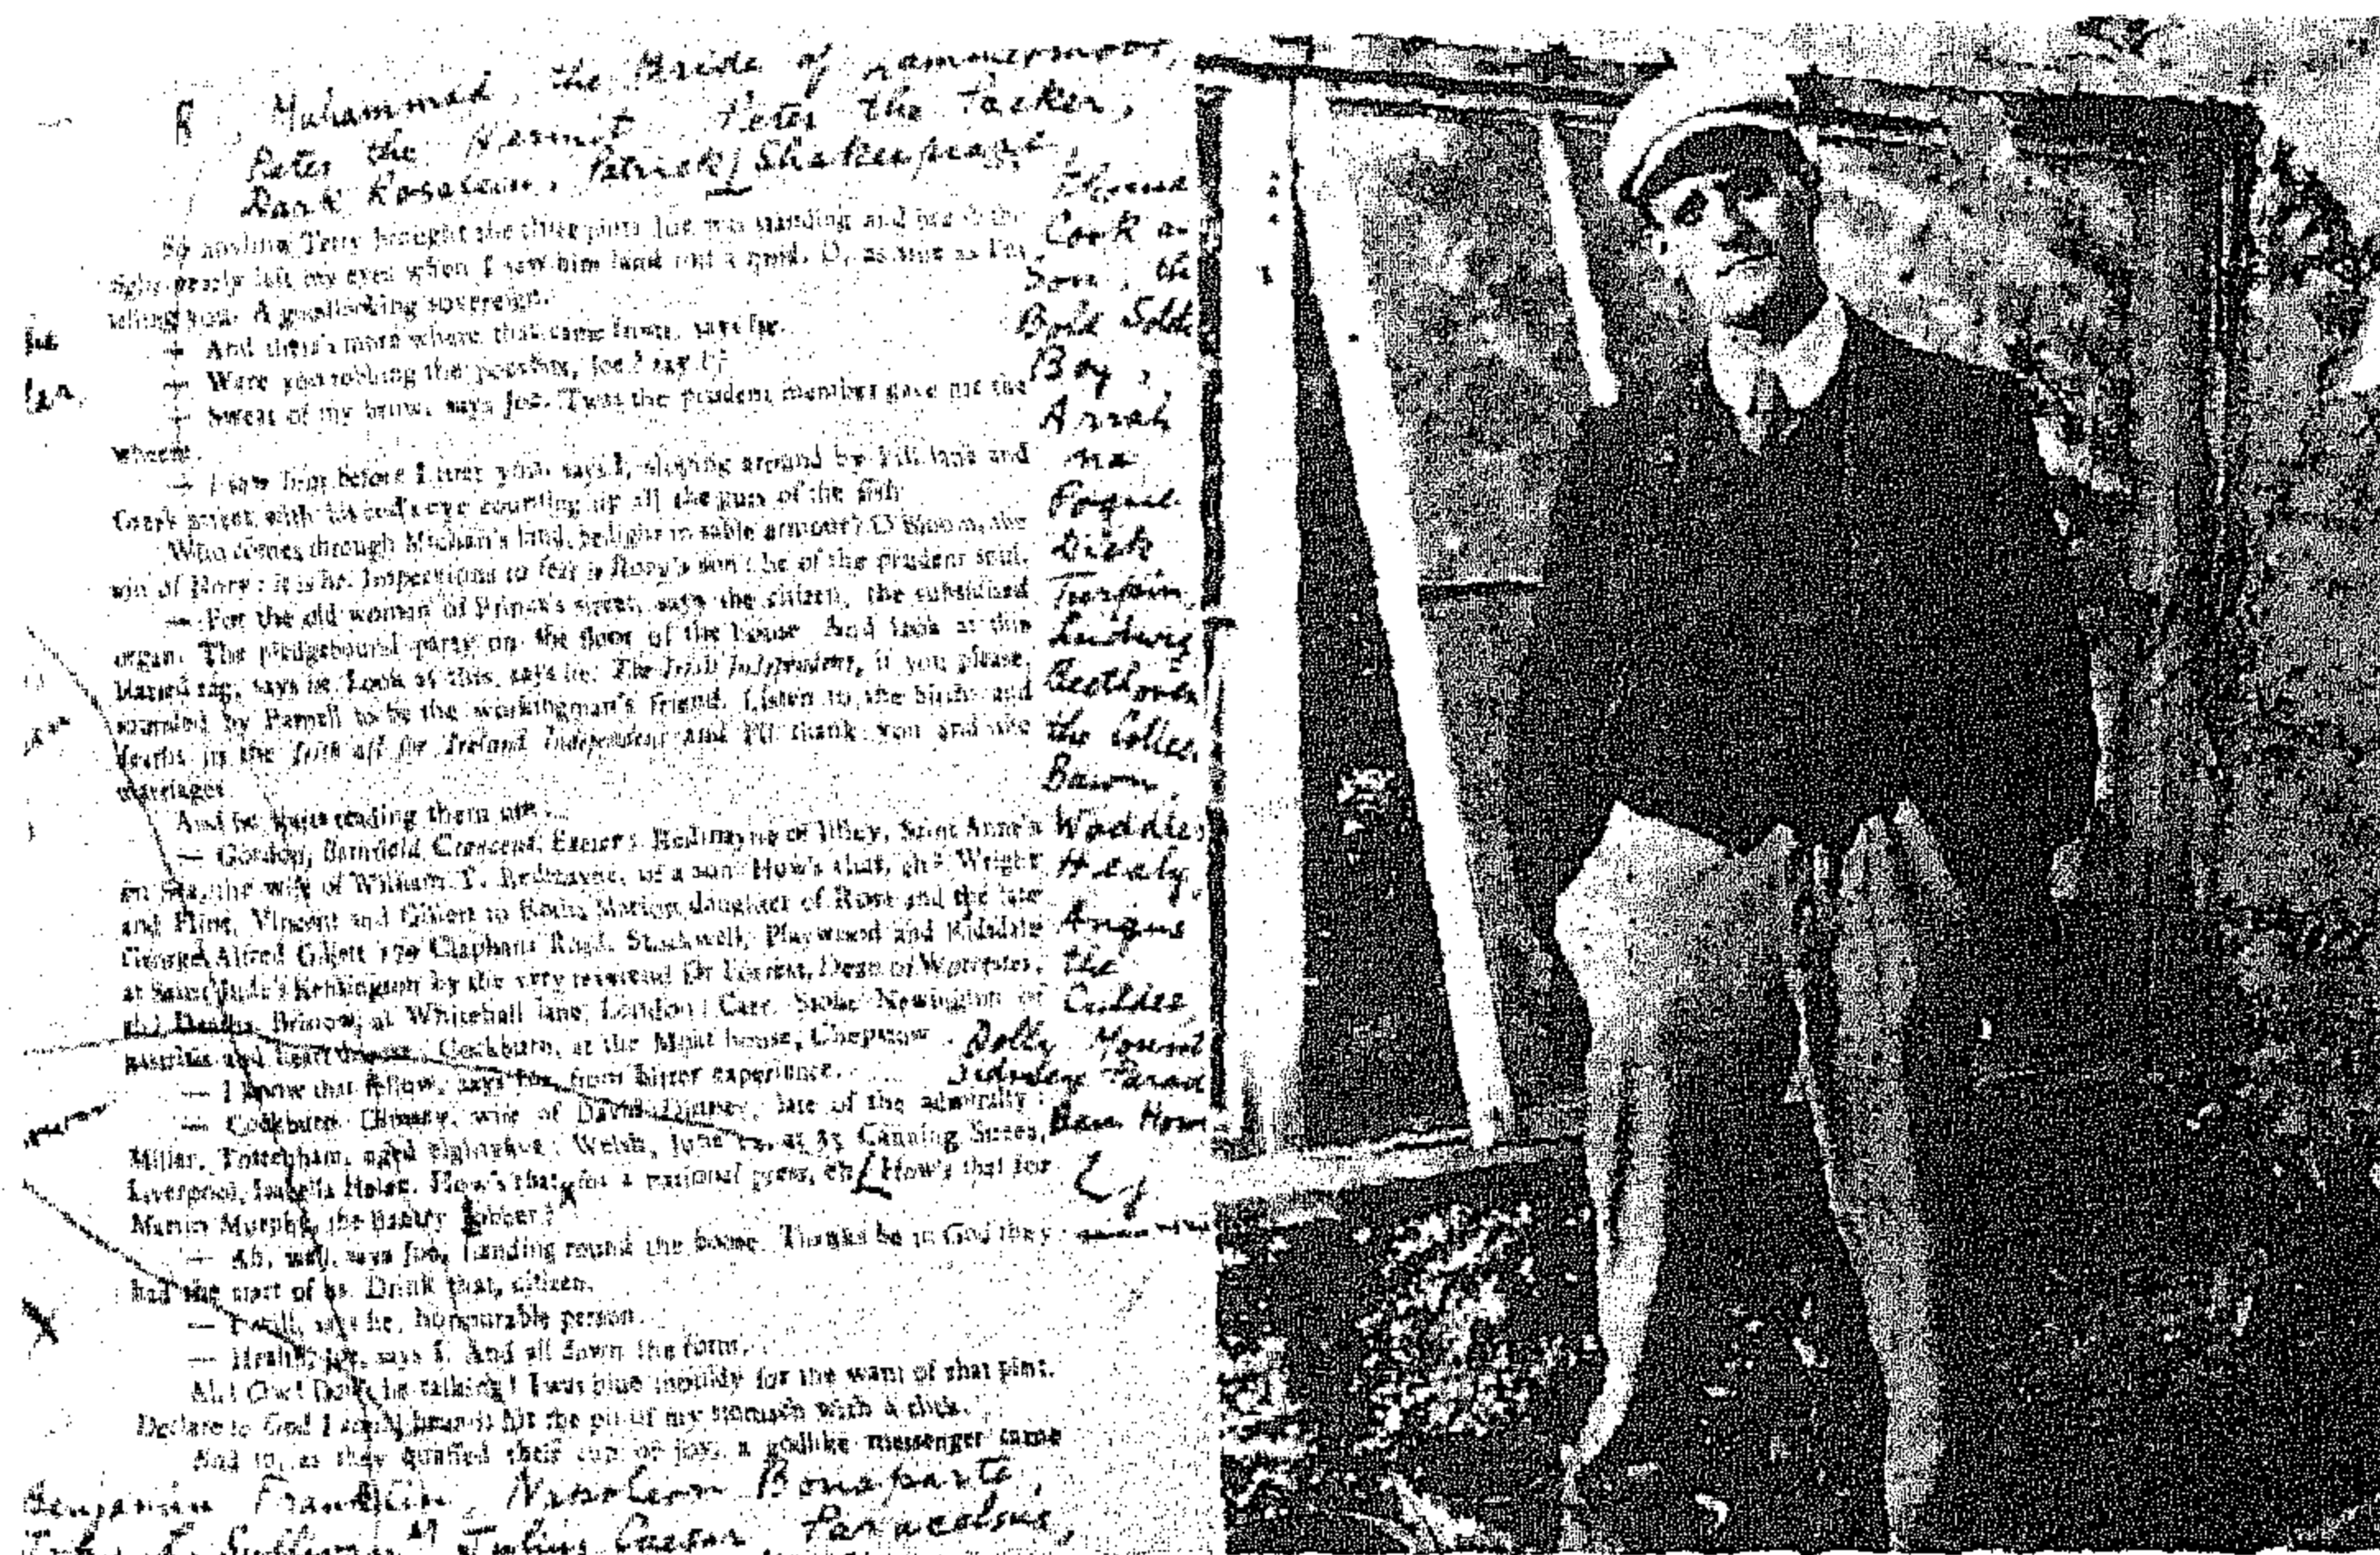 Muhammad, the Bride of Lammermoor,
Peter the Hermit, Peter the Packer,
Dark Rosaleen, Patrick Shakespeare,
Thomas
Cook a
Son, the
Bold Soldi
Boy,
Arrah
na
Pogue
Dick
Turpin,
Ludwig
Beethoven
the Collee
Bawn
Waddler
Healy,
Angus
the
Culdee
Dolly Mount
Sidney Parad
Ben How
So anyhow Terry brought the three pints Joe was standing and the
sight nearly left my eyes when I saw him land out a quid. O, as true as I'm
telling you. A goodlooking sovereign.
— And there's more where that came from, says he.
— Were you robbing the poorbox, Joe? says I.
— Sweat of my brow, says Joe. 'Twas the prudent member gave me the
wheeze.
— I saw him before I met you, says I, sloping around by Pill lane and
Greek street with his cod's eye counting up all the guts of the fish.
Who comes through Michan's land, bedight in sable armour? O'Bloom, the
son of Rory: it is he. Impervious to fear is Rory's son: he of the prudent soul.
— For the old woman of Prince's street, says the citizen, the subsidised
organ. The pledgebound party on the floor of the house. And look at this
blasted rag, says he. Look at this, says he. The Irish Independent, if you please,
founded by Parnell to be the workingman's friend. Listen to the births and
deaths in the Irish all for Ireland Independent and I'll thank you and the
marriages.
And he starts reading them out:
— Gordon, Barnfield Crescent, Exeter; Redmayne of Iffley, Saint Anne's
on Sea, the wife of William T. Redmayne, of a son. How's that, eh? Wright
and Flint, Vincent and Gillett to Rotha Marion daughter of Rosa and the late
George Alfred Gillett 179 Clapham Road, Stockwell, Playwood and Ridsdale
at Saint Jude's Kensington by the very reverend Dr Forrest, Dean of Worcester,
eh? Deaths. Bristow, at Whitehall lane, London: Carr, Stoke Newington of
gastritis and heart disease: Cockburn, at the Moat house, Chepstow
— I know that fellow, says Joe, from bitter experience.
— Cockburn. Dimsey, wife of David Dimsey, late of the admiralty:
Miller, Tottenham, aged eightyfive: Welsh, June 12, at 35 Canning Street,
Liverpool, Isabella Helen. How's that for a national press, eh? How's that for
Martin Murphy, the Bantry jobber?
— Ah, well, says Joe, handing round the boose. Thanks be to God they
had the start of us. Drink that, citizen.
— I will, says he, honourable person.
— Health, Joe, says I. And all down the form.
Ah! Ow! Don't be talking! I was blue mouldy for the want of that pint.
Declare to God I could hear it hit the pit of my stomach with a click.
And lo, as they quaffed their cup of joy, a godlike messenger came
Benjamin Franklin, Napoleon Bonaparte,
Julius Caesar, Paracelsus,